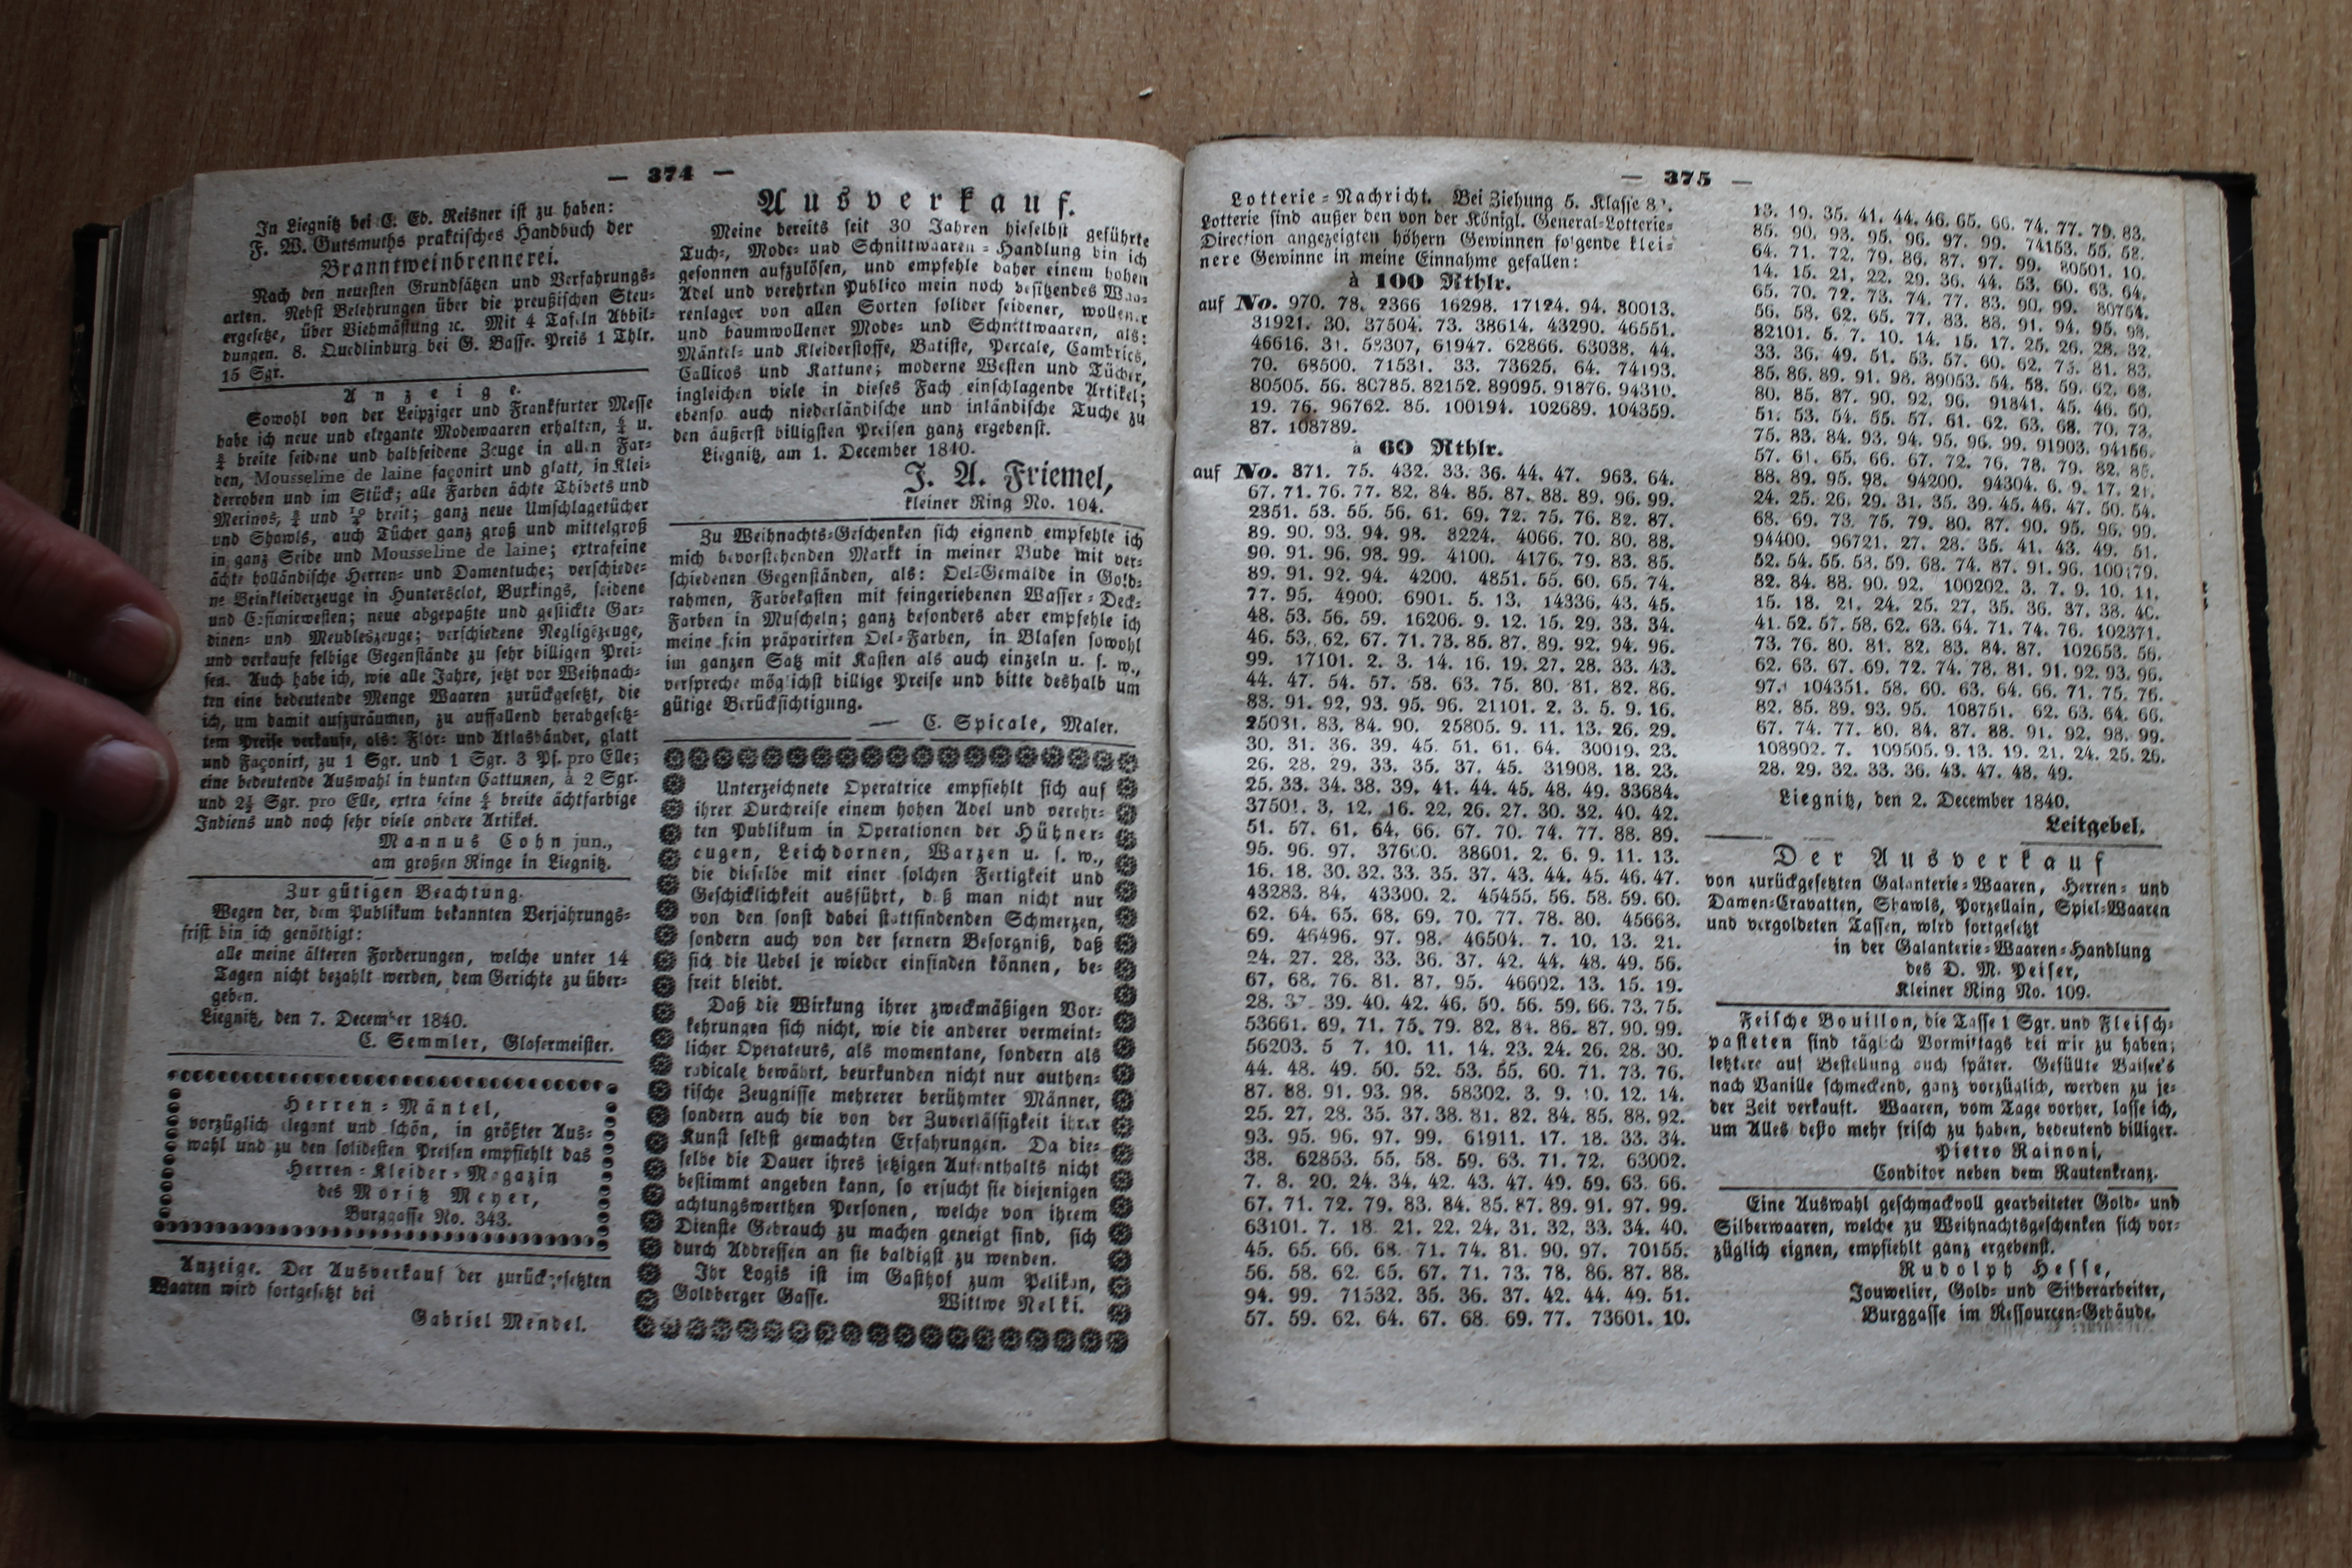 — 374 —
In Liegnitz bei C. Ed. Reisner ist zu haben:
F. W. Gutsmuths praktisches Handbuch der
Branntweinbrennerei.
Nach den neuesten Grundsätzen und Verfahrungs-
arten. Nebst Belehrungen über die preußischen Steu-
ergesetze, über Viehmästung ꝛc. Mit 4 Tafeln Abbil-
dungen. 8. Quedlinburg bei G. Basse. Preis 1 Thlr.
15 Sgr.
Anzeige.
Sowohl von der Leipziger und Frankfurter Messe
habe ich neue und elegante Modewaaren erhalten, u.
breite seidene und halbseidene Zeuge in allen Far-
ben, Mousseline de laine façonirt und glatt, in Klei-
derroben und im Stück; alle Farben ächte Thibets und
Merinos, und breit; ganz neue Umschlagetücher
und Shawls, auch Tücher ganz groß und mittelgroß
in ganz Seide und Mousseline de laine; extrafeine
ächte holländische Herren- und Damentuche; verschiede-
ne Beinkleiderzeuge in Huntersclot, Buxkings, seidene
und Casimirwesten; neue abgepaßte und gestickte Gar-
dinen- und Meubleszeuge; verschiedene Negligézeuge,
und verkaufe selbige Gegenstände zu sehr billigen Prei-
sen. Auch habe ich, wie alle Jahre, jetzt vor Weihnach-
ten eine bedeutende Menge Waaren zurückgesetzt, die
ich, um damit aufzuräumen, zu auffallend herabgesetz-
tem Preise verkaufe, als: Flor- und Atlasbänder, glatt
und Façonirt, zu 1 Sgr. und 1 Sgr. 3 Pf. pro Elle;
eine bedeutende Auswahl in bunten Cattunen, à 2 Sgr.
und 2½ Sgr. pro Elle, extra feine breite ächtfarbige
Indiens und noch sehr viele andere Artikel.
Mannus Cohn jun.,
am großen Ringe in Liegnitz.
Zur gütigen Beachtung.
Wegen der, dem Publikum bekannten Verjährungs-
frist bin ich genöthigt:
alle meine älteren Forderungen, welche unter 14
Tagen nicht bezahlt werden, dem Gerichte zu über-
geben.
Liegnitz, den 7. December 1840.
C. Semmler, Glasermeister.
Herren-Mäntel,
vorzüglich elegant und schön, in größter Aus-
wahl und zu den solidesten Preisen empfiehlt das
Herren-Kleider-Magazin
des Moritz Meyer,
Burggasse No. 343.
Anzeige. Der Ausverkauf der zurückgesetzten
Waaren wird fortgesetzt bei
Gabriel Mendel.
Ausverkauf.
Meine bereits seit 30 Jahren hieselbst geführte
Tuch-, Mode- und Schnittwaaren-Handlung bin ich
gesonnen aufzulösen, und empfehle daher einem hohen
Adel und verehrten Publico mein noch besitzendes Waa-
renlager von allen Sorten solider seidener, wollener
und baumwollener Mode- und Schnittwaaren, als:
Mäntel- und Kleiderstoffe, Batiste, Percale, Cambrics,
Callicos und Kattune; moderne Westen und Tücher,
ingleichen viele in dieses Fach einschlagende Artikel;
ebenso auch niederländische und inländische Tuche zu
den äußerst billigsten Preisen ganz ergebenst.
Liegnitz, am 1. December 1840.
J. A. Friemel,
kleiner Ring No. 104.
Zu Weihnachts-Geschenken sich eignend empfehle ich
mich bevorstehenden Markt in meiner Bude mit ver-
schiedenen Gegenständen, als: Oel-Gemälde in Gold-
rahmen, Farbekasten mit feingeriebenen Wasser-Deck-
Farben in Muscheln; ganz besonders aber empfehle ich
meine fein präparirten Oel-Farben, in Blasen sowohl
im ganzen Satz mit Kasten als auch einzeln u. s. w.,
verspreche möglichst billige Preise und bitte deshalb um
gütige Berücksichtigung.
— C. Spicale, Maler.
Unterzeichnete Operatrice empfiehlt sich auf
ihrer Durchreise einem hohen Adel und verehr-
ten Publikum in Operationen der Hühner-
augen, Leichdornen, Warzen u. s. w.,
die dieselbe mit einer solchen Fertigkeit und
Geschicklichkeit ausführt, daß man nicht nur
von den sonst dabei stattfindenden Schmerzen,
sondern auch von der fernern Besorgniß, daß
sich die Uebel je wieder einfinden können, be-
freit bleibt.
Daß die Wirkung ihrer zweckmäßigen Vor-
kehrungen sich nicht, wie die anderer vermeint-
licher Operateurs, als momentane, sondern als
radicale bewährt, beurkunden nicht nur authen-
tische Zeugnisse mehrerer berühmter Männer,
sondern auch die von der Zuverlässigkeit ihrer
Kunst selbst gemachten Erfahrungen. Da die-
selbe die Dauer ihres jetzigen Aufenthalts nicht
bestimmt angeben kann, so ersucht sie diejenigen
achtungswerthen Personen, welche von ihrem
Dienste Gebrauch zu machen geneigt sind, sich
durch Addressen an sie baldigst zu wenden.
Ihr Logis ist im Gasthof zum Pelikan,
Goldberger Gasse. Wittwe Nelki.
— 375 —
Lotterie-Nachricht. Bei Ziehung 5. Klasse
Lotterie sind außer den von der Königl. General-Lotterie-
Direction angezeigten höhern Gewinnen folgende klei-
nere Gewinne in meine Einnahme gefallen:
à 100 Rthlr.
auf No. 970. 78. 2366 16298. 17124. 94. 30013.
31921. 30. 37504. 73. 38614. 43290. 46551.
46616. 31. 58307, 61947. 62866. 63038. 44.
70. 68500. 71531. 33. 73625. 64. 74193.
80505. 56. 80785. 82152. 89095. 91876. 94310.
19. 76. 96762. 85. 100194. 102689. 104359.
87. 108789.
à 60 Rthlr.
auf No. 371. 75. 432. 33. 36. 44. 47. 963. 64.
67. 71. 76. 77. 82. 84. 85. 87. 88. 89. 96. 99.
2351. 53. 55. 56. 61. 69. 72. 75. 76. 82. 87.
89. 90. 93. 94. 98. 3224. 4066. 70. 80. 88.
90. 91. 96. 98. 99. 4100. 4176. 79. 83. 85.
89. 91. 92. 94. 4200. 4851. 55. 60. 65. 74.
77. 95. 4900. 6901. 5. 13. 14336. 43. 45.
48. 53. 56. 59. 16206. 9. 12. 15. 29. 33. 34.
46. 53. 62. 67. 71. 73. 85. 87. 89. 92. 94. 96.
99. 17101. 2. 3. 14. 16. 19. 27. 28. 33. 43.
44. 47. 54. 57. 58. 63. 75. 80. 81. 82. 86.
88. 91. 92. 93. 95. 96. 21101. 2. 3. 5. 9. 16.
25081. 83. 84. 90. 25805. 9. 11. 13. 26. 29.
30. 31. 36. 39. 45. 51. 61. 64. 30019. 23.
26. 28. 29. 33. 35. 37. 45. 31908. 18. 23.
25. 33. 34. 38. 39. 41. 44. 45. 48. 49. 33684.
37501. 3. 12. 16. 22. 26. 27. 30. 32. 40. 42.
51. 57. 61. 64. 66. 67. 70. 74. 77. 88. 89.
95. 96. 97. 37600. 38601. 2. 6. 9. 11. 13.
16. 18. 30. 32. 33. 35. 37. 43. 44. 45. 46. 47.
43283. 84. 43300. 2. 45455. 56. 58. 59. 60.
62. 64. 65. 68. 69. 70. 77. 78. 80. 45668.
69. 46496. 97. 98. 46504. 7. 10. 13. 21.
24. 27. 28. 33. 36. 37. 42. 44. 48. 49. 56.
67. 68. 76. 81. 87. 95. 46602. 13. 15. 19.
28. 37. 39. 40. 42. 46. 50. 56. 59. 66. 73. 75.
53661. 69. 71. 75. 79. 82. 84. 86. 87. 90. 99.
56203. 5 7. 10. 11. 14. 23. 24. 26. 28. 30.
44. 48. 49. 50. 52. 53. 55. 60. 71. 73. 76.
87. 88. 91. 93. 98. 58302. 3. 9. 10. 12. 14.
25. 27. 28. 35. 37. 38. 81. 82. 84. 85. 88. 92.
93. 95. 96. 97. 99. 61911. 17. 18. 33. 34.
38. 62853. 55. 58. 59. 63. 71. 72. 63002.
7. 8. 20. 24. 34. 42. 43. 47. 49. 59. 63. 66.
67. 71. 72. 79. 83. 84. 85. 87. 89. 91. 97. 99.
63101. 7. 18. 21. 22. 24. 31. 32. 33. 34. 40.
45. 65. 66. 68. 71. 74. 81. 90. 97. 70155.
56. 58. 62. 65. 67. 71. 73. 78. 86. 87. 88.
94. 99. 71532. 35. 36. 37. 42. 44. 49. 51.
57. 59. 62. 64. 67. 68. 69. 77. 73601. 10.
13. 19. 35. 41. 44. 46. 65. 66. 74. 77. 79. 83.
85. 90. 93. 95. 96. 97. 99. 74153. 55. 58.
64. 71. 72. 79. 86. 87. 97. 99. 80501. 10.
14. 15. 21. 22. 29. 36. 44. 53. 60. 63. 64.
65. 70. 72. 73. 74. 77. 83. 90. 99. 80754.
56. 58. 62. 65. 77. 83. 88. 91. 94. 95. 98.
82101. 5. 7. 10. 14. 15. 17. 25. 26. 28. 32.
33. 36. 49. 51. 53. 57. 60. 62. 73. 81. 83.
85. 86. 89. 91. 98. 89053. 54. 58. 59. 62. 68.
80. 85. 87. 90. 92. 96. 91841. 45. 46. 50.
51. 53. 54. 55. 57. 61. 62. 63. 68. 70. 73.
75. 83. 84. 93. 94. 95. 96. 99. 91903. 94156.
57. 61. 65. 66. 67. 72. 76. 78. 79. 82. 85.
88. 89. 95. 98. 94200. 94304. 6. 9. 17. 21.
24. 25. 26. 29. 31. 35. 39. 45. 46. 47. 50. 54.
68. 69. 73. 75. 79. 80. 87. 90. 95. 96. 99.
94400. 96721. 27. 28. 35. 41. 43. 49. 51.
52. 54. 55. 58. 59. 68. 74. 87. 91. 96. 100179.
82. 84. 88. 90. 92. 100202. 3. 7. 9. 10. 11.
15. 18. 21. 24. 25. 27. 35. 36. 37. 38. 40.
41. 52. 57. 58. 62. 63. 64. 71. 74. 76. 102371.
73. 76. 80. 81. 82. 83. 84. 87. 102653. 56.
62. 63. 67. 69. 72. 74. 78. 81. 91. 92. 93. 96.
97. 104351. 58. 60. 63. 64. 66. 71. 75. 76.
82. 85. 89. 93. 95. 108751. 62. 63. 64. 66.
67. 74. 77. 80. 84. 87. 88. 91. 92. 98. 99.
108902. 7. 109505. 9. 13. 19. 21. 24. 25. 26.
28. 29. 32. 33. 36. 43. 47. 48. 49.
Liegnitz, den 2. December 1840.
Leitgebel.
Der Ausverkauf
von zurückgesetzten Galanterie-Waaren, Herren- und
Damen-Cravatten, Shawls, Porzellain, Spiel-Waaren
und vergoldeten Tassen, wird fortgesetzt
in der Galanterie-Waaren-Handlung
des D. M. Peiser,
Kleiner Ring No. 109.
Feische Bouillon, die Tasse 1 Sgr. und Fleisch-
pasteten sind täglich Vormittags bei mir zu haben;
letztere auf Bestellung auch später. Gefüllte Baisee's
nach Vanille schmeckend, ganz vorzüglich, werden zu je-
der Zeit verkauft. Waaren, vom Tage vorher, lasse ich,
um Alles desto mehr frisch zu haben, bedeutend billiger.
Pietro Rainoni,
Conditor neben dem Rautenkranz.
Eine Auswahl geschmackvoll gearbeiteter Gold- und
Silberwaaren, welche zu Weihnachtsgeschenken sich vor-
züglich eignen, empfiehlt ganz ergebenst.
Rudolph Hesse,
Jouwelier, Gold- und Silberarbeiter,
Burggasse im Ressourcen-Gebäude.